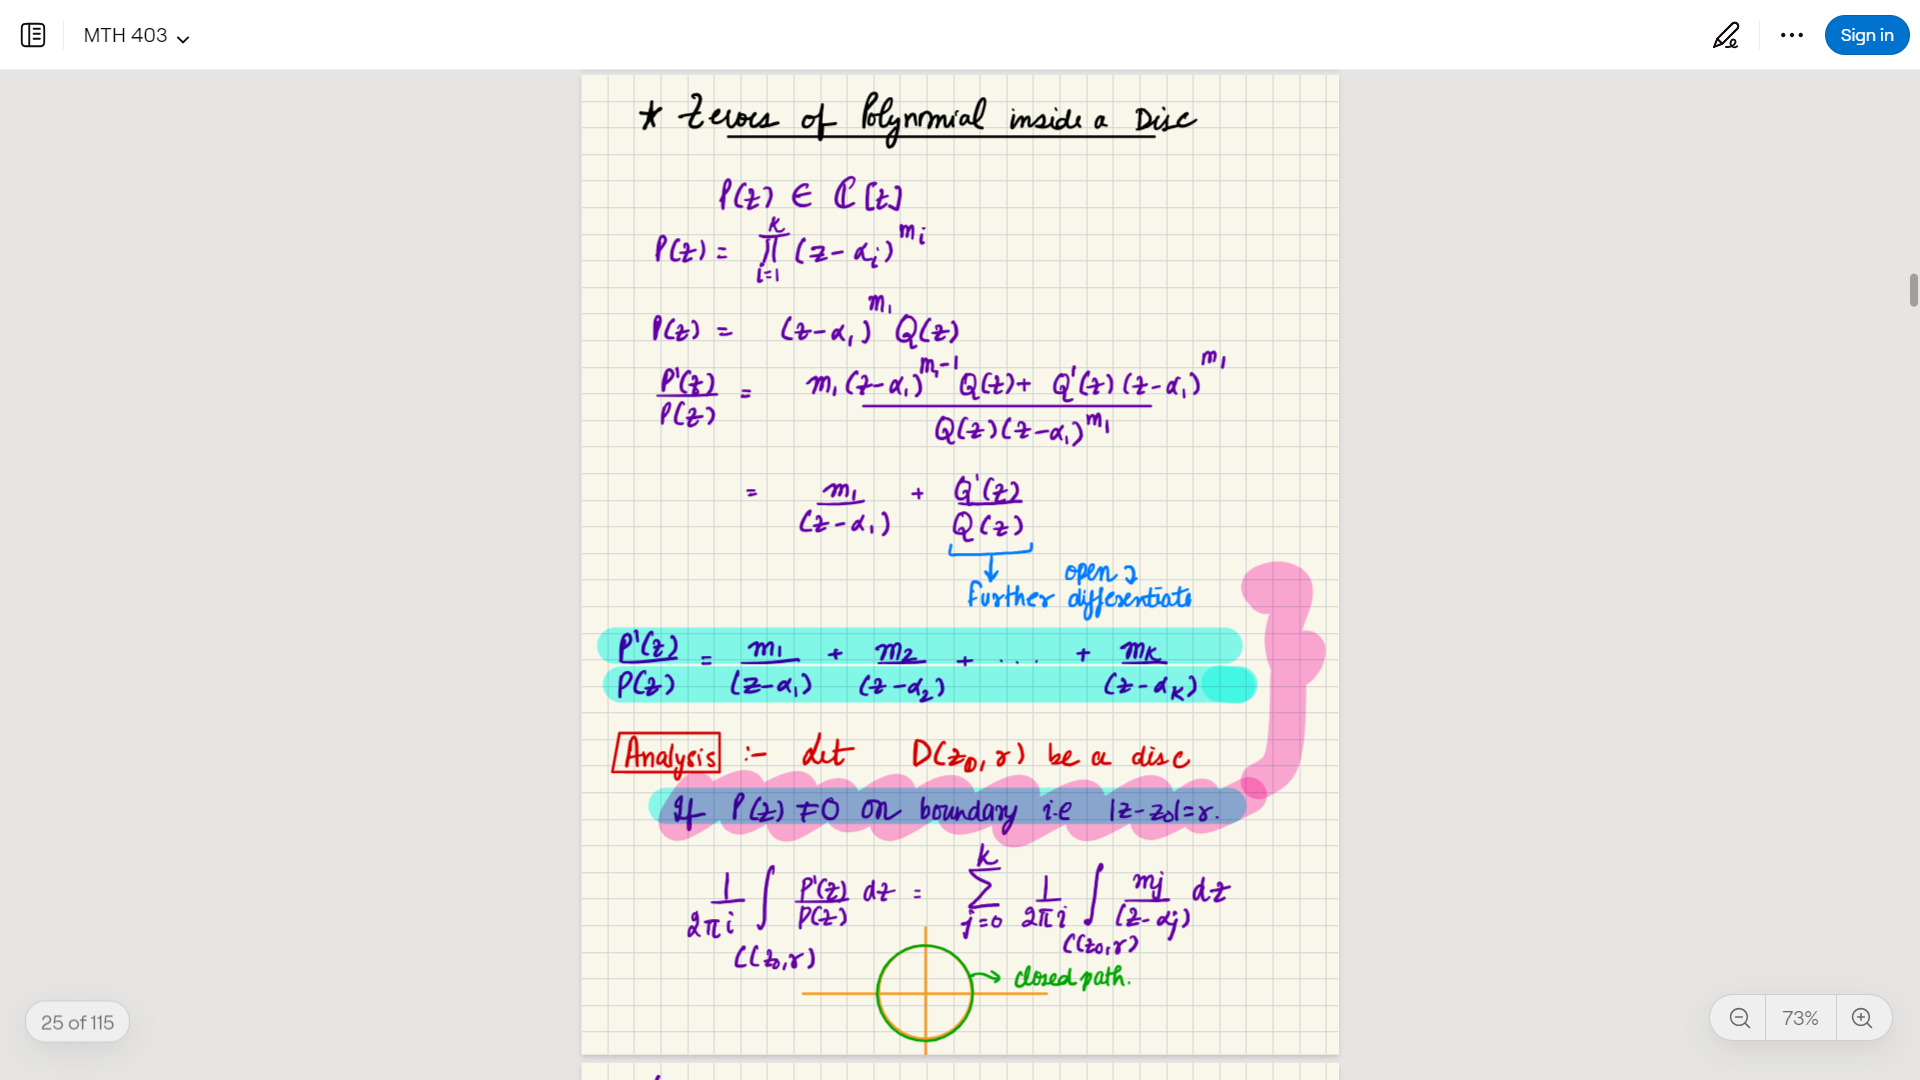 MTH 403
Sign in
* Zeroes of Polynomial inside a Disc
P(z) ∈ ℂ[z]
P(z) = ∏_{i=1}^{K} (z - α_i)^{m_i}
P(z) = (z - α_1)^{m_1} Q(z)
P'(z)/P(z) = m_1 (z - α_1)^{m_1 - 1} Q(z) + Q'(z) (z - α_1)^{m_1} / Q(z) (z - α_1)^{m_1}
= m_1/(z - α_1) + Q'(z)/Q(z)
open &
further differentiate
P'(z)/P(z) = m_1/(z - α_1) + m_2/(z - α_2) + .... + m_K/(z - α_K)
Analysis :- Let D(z_0, r) be a disc
If P(z) ≠ 0 on boundary i.e |z - z_0| = r.
1/2πi ∫_{C(z_0, r)} P'(z)/P(z) dz = ∑_{j=0}^{k} 1/2πi ∫_{C(z_0, r)} m_j/(z - α_j) dz
closed path.
25 of 115
73%